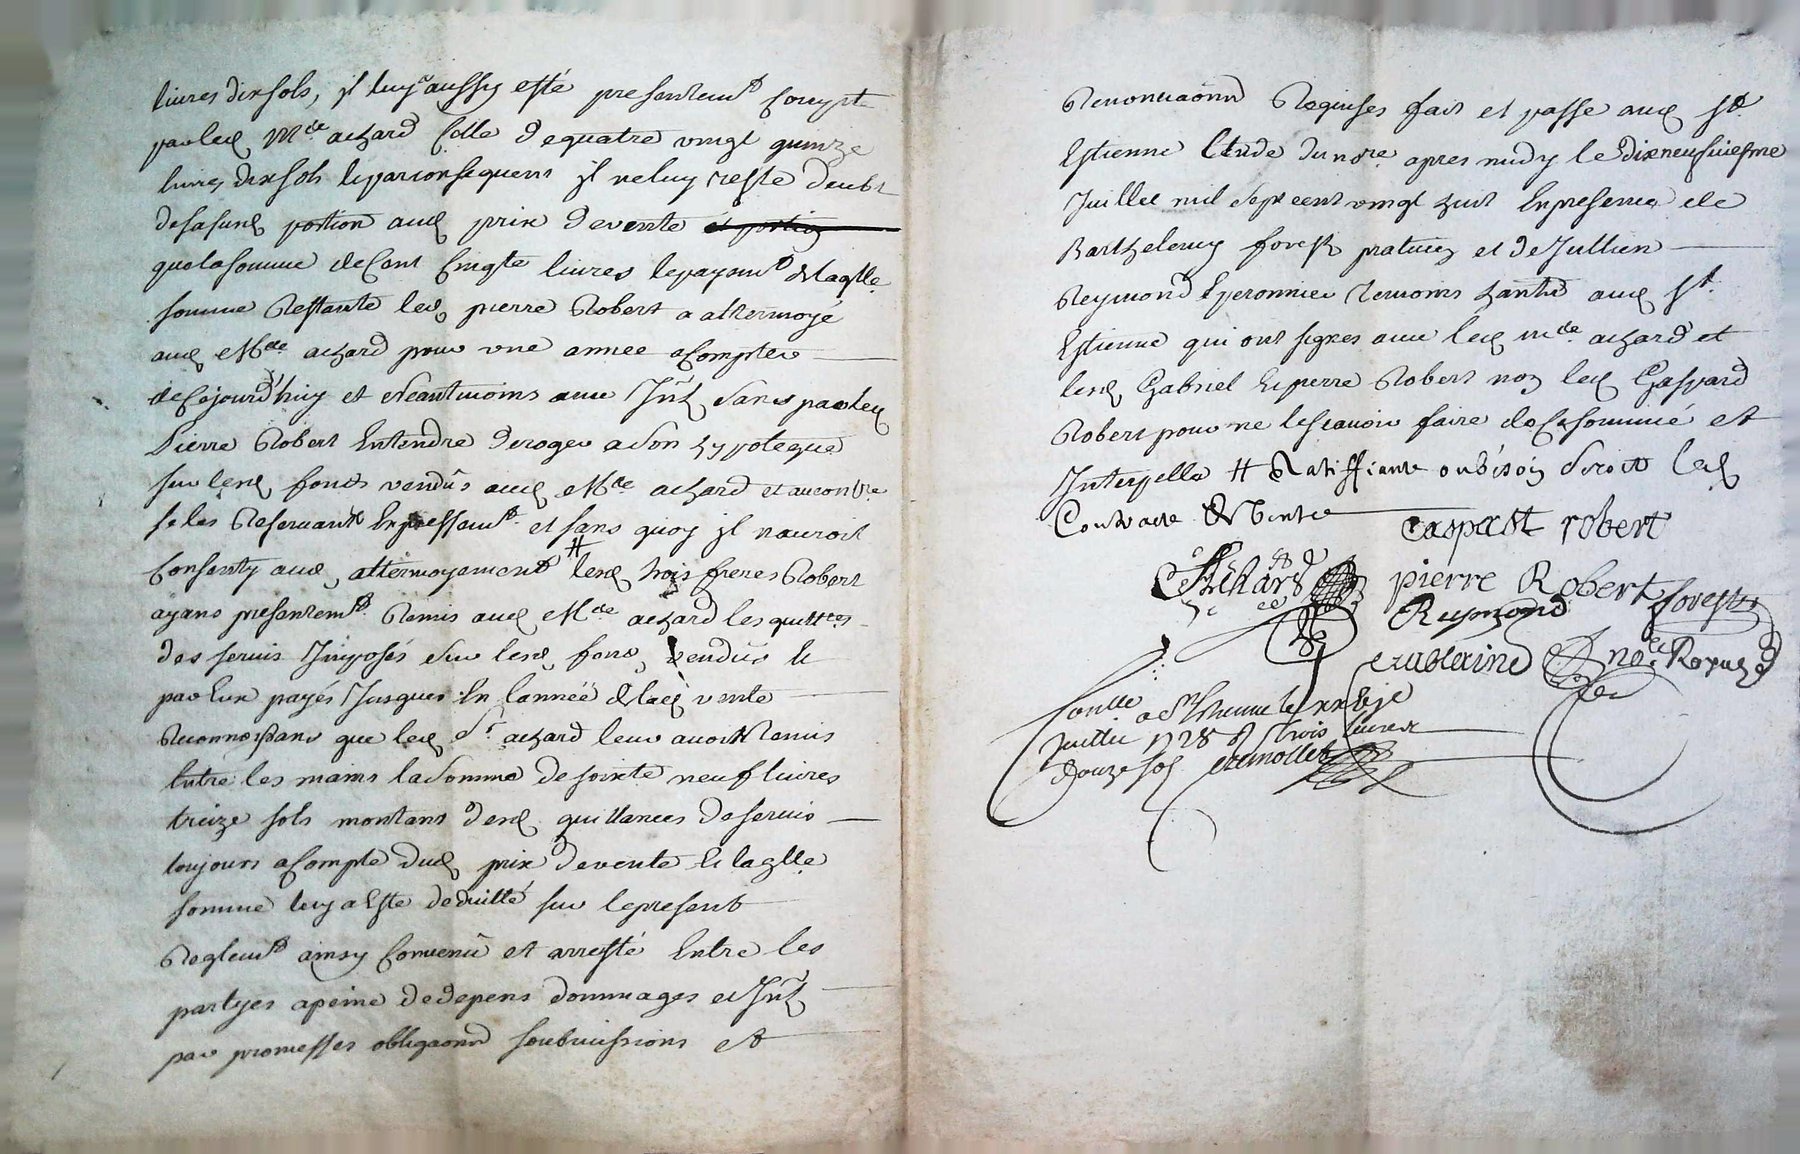 livres dix sols, il luy a aussy esté presentemt compté
par led. Mde achard celle de quatre vingt quinze
livres dix sols et par consequent il ne luy reste deubt
de sa susd. portion aud. prix de vente et portion
que la somme de cent cingte livres le payemt de laqlle
somme Restante led. pierre Robert a attermoyé
aud. Mde achard pour une année a compter
de cejourd'huy et neantmoins avec Intt. sans par led.
Pierre Robert Entendre deroger a son hypoteque
sur lesd. fonds vendûs aud. Mde achard et au contre
se les Reservant Expressemt et sans quoy il n'auroit
Consenty aud. attermoyement # lesd. trois freres Robert
ayans presentemt Remis aud. Mde achard les quittces
des servis Imposés sur lesd. fonds vendus et
par Eux payés Jusques En l'année de lad. vente
Reconnoissans que led. Sr achard leur avoit Remis
Entre les mains la somme de soixte neuf livres
treize sols montans desd. quittances de servis
toujours a Compte dud. prix de vente et laqlle
somme luy a Esté deduitte sur le present
Reglemt ainsy Convenû et arresté Entre les
partyes a peine de depens dommages et Intt.
par promesses obligaonn soubmissions et
Renonciaonn Requises fait et passé aud. St.
Estienne Etude du nore apres midy le dixneufviesme
Juillet mil sept cent vingt huit En presence de
Barthelemy forest praticien et de Jullien
Reymond Eperonnier temoins habts aud. St.
Estienne qui ont signes avec led. Mde achard et
lesd. Gabriel et pierre Robert non led. Gaspard
Robert pour ne le scavoir faire de ce sommé et
Interpellé # Ratiffiant en besoin seroit led.
Contract de Vente
caspart robert
Achard
pierre Robert forest
Reymond
nore Royal
Conllé a St Estienne le
Juillet 1728 Rs trois livres
douze sols